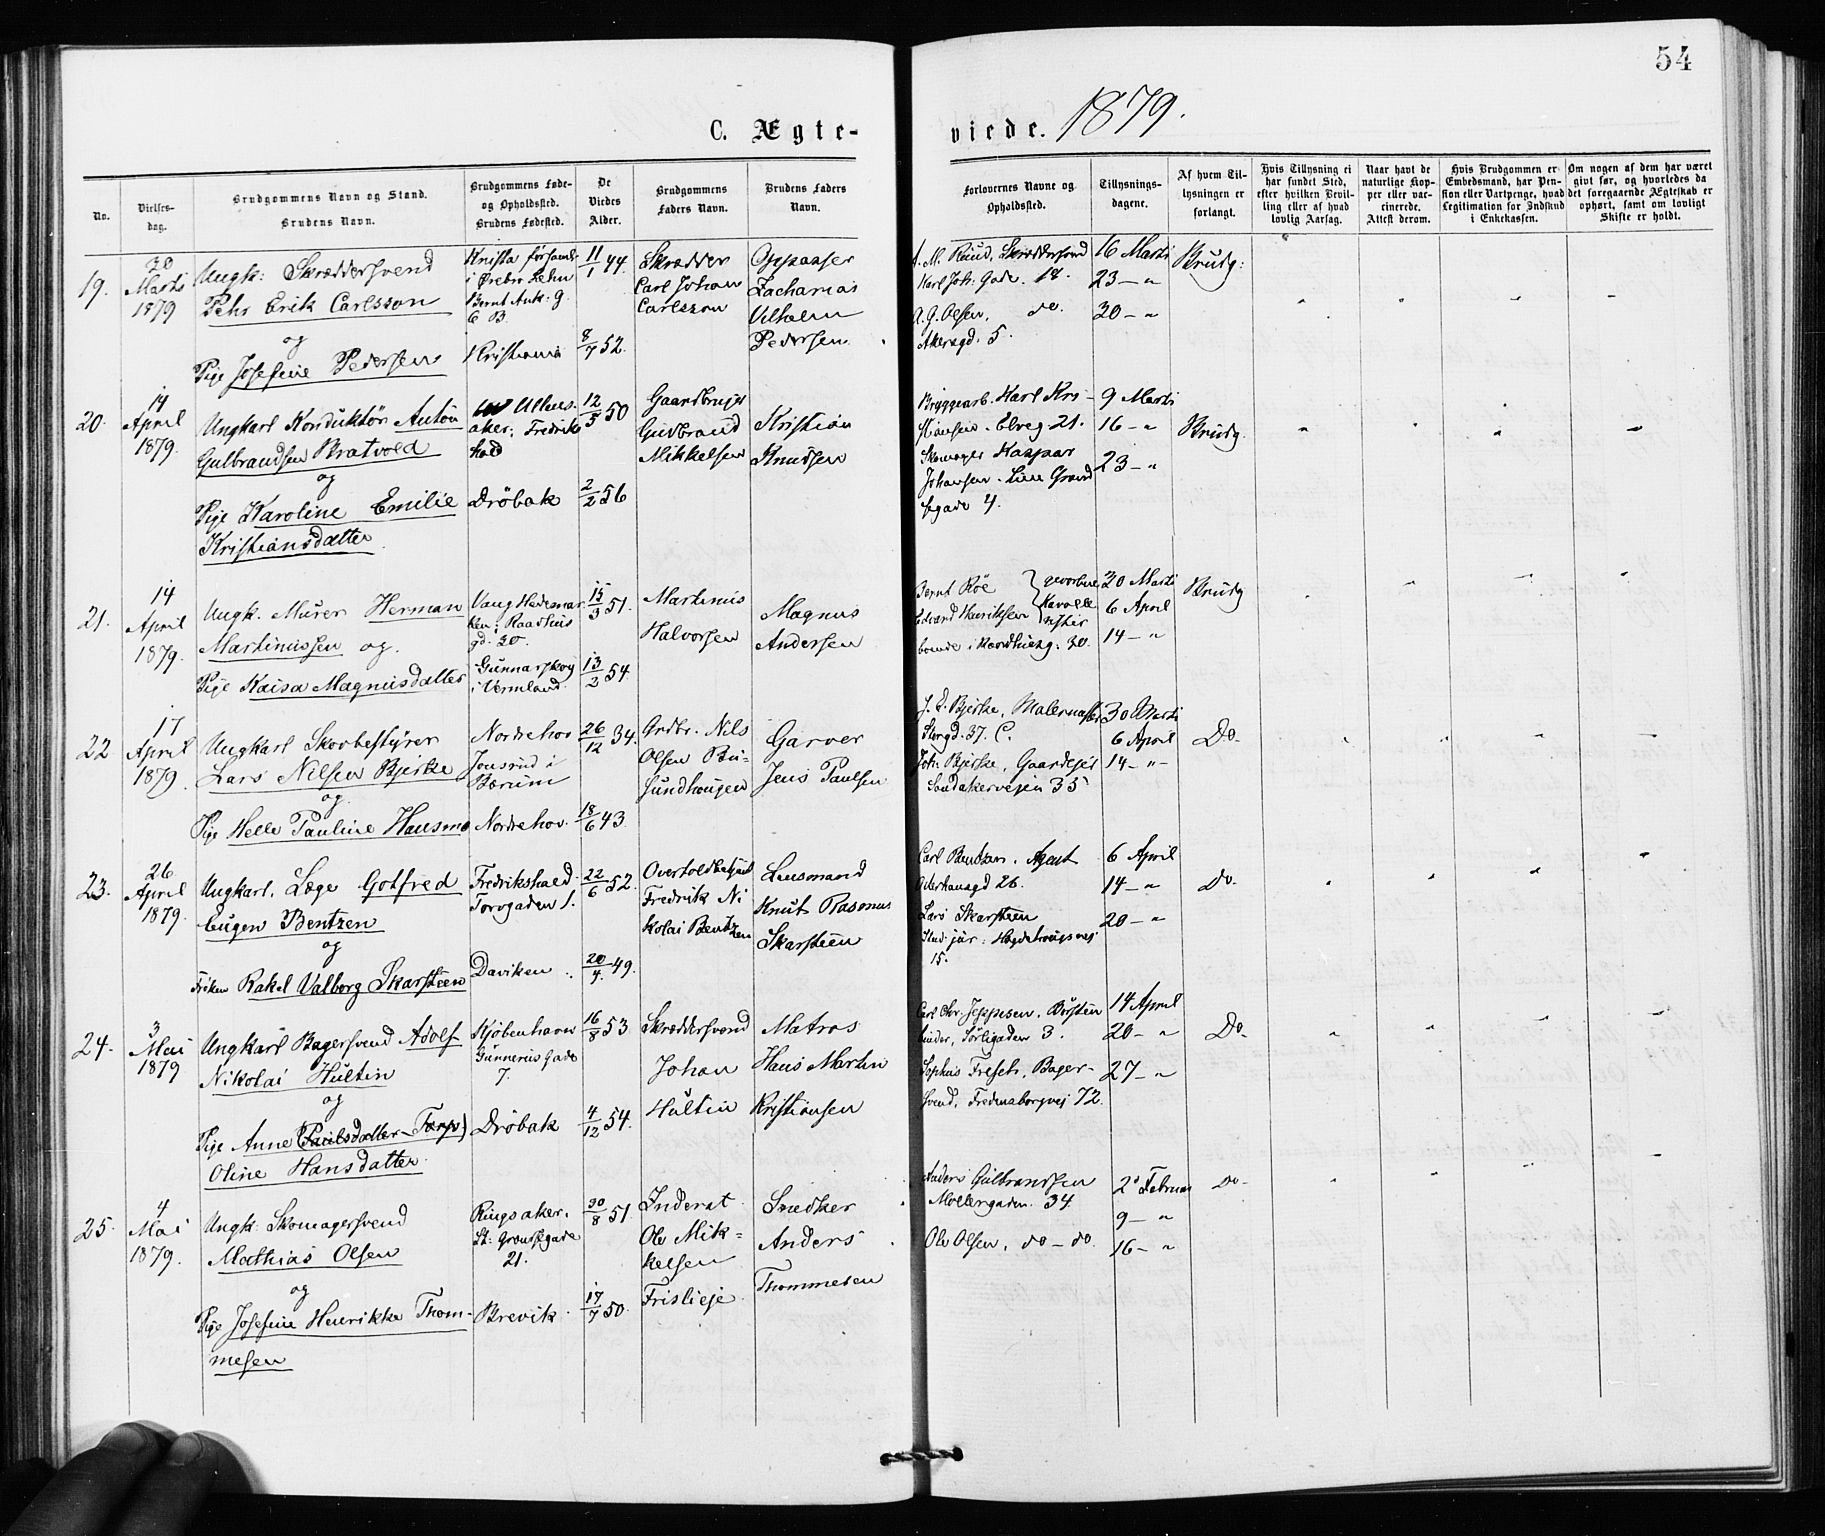 54
C. Ægte-
viede. 1879.
No.
Vielses-
dag.
Brudgommens Navn og Stand.
Brudens Navn.
Brudgommens Føde-
og Opholdssted.
Brudens Fødested.
De
Viedes
Alder.
Brudgommens
Faders Navn.
Brudens Faders
Navn.
Forlovernes Navne og
Opholdssted.
Tillysnings-
dagene.
Af hvem Til-
lysningen er
forlangt.
Hvis Tillysning ei
har fundet Sted,
efter hvilken Bevil-
ling eller af hvad
lovlig Aarsag.
Naar havt de
naturlige Kop-
per eller vac-
cinerede.
Attest derom.
Hvis Brudgommen er
Embedsmand, har Pen-
sion eller Vartpenge, hvad
Legitimation for Indskud
i Enkekassen.
Om nogen af dem har været
givt før, og hvorledes da
det foregaaende Ægteskab er
ophørt, samt om lovligt
Skifte er holdt.
19.
30
Marts
1879
Ungk: Skræddersvend
Pehr Erik Carlsson
og
Pige Josefine Pedersen
Knista førsaml.
i Ørebro Lehn
Bernt Ank: g
6 B.
Kristiania
11/1 44.
8/7 52.
Skrædder
Carl Johan
Carlsson
Oppasser
Zacharias
Vilhelm
Pedersen.
A. M. Ruud, Skræddersvend
Karl Joh: Gade. 18.
A. G. Olsen, do.
Akersgd. 5.
16 Marts
23 — "
30 — "
Brudg:
20.
14
April
1879.
Ungkarl Konduktør Anton
Gulbrandsen Bratvold
og
Pige Karoline Emilie
Kristiansdatter
Ullens-
aker; Fredriks
hald
Drøbak
12/5 50
2/2 56
Gaardbruger
Gudbrand
Mikkelsen
Kristian
Knudsen
Bryggearb. Karl Kri-
stiansen. Elveg 21.
Skomager Kaspar
Johansen. Lille Grænd
segade 4.
9 Marts
16 — "
23 — "
Brudg.
21.
14
April
1879.
Ungk. Murer Herman
Martinussen og.
Pige Kaisa Magnusdatter
Vang Hedemar
ken; Raadhus
gd. 30.
Gunnarskog
i Vermland.
15/3 51.
13/2 54.
Martinus
Halvorsen
Magnus
Andersen
Bernt Röe
Edvard Henriksen
boende i Raadhusg. 30.
30 Marts
6 April
14 — "
Brudg
22
17
April
1879.
Ungkarl Skovbestyrer
Lars Nilsen Bjerke
og
Pige Helle Pauline Hansmo
Nordrehov
Jonsrud i
Bærum
Nordrehov.
26/12 34.
18/6 43
Grdbr. Nils
Olsen Bu-
sundhougen
Garver
Jens Paulsen
J. E. Bjerke, Malermester
Storgd. 37. C.
Joh. Bjerke, Gaardejer
Sandakerveien 35
30 Marts
6 April
14 — "
Do.
23.
26
April
1879.
Ungkarl. Læge Gotfred
Eugen Bentzen
og
Frøken Rakel Valborg Skarsteen
Fredrikshald.
Torvgaden 1.
Daviken
22/6 52.
20/4 49.
Overtoldbetjent
Fredrik Ni
kolai Bentzen
Lensmand
Knut Rasmus
Skarsteen
Carl Bentzen. Agent
Pilestrædsgd 26.
Lars Skarsteen
Stud. jur: Hegdehaugsvej
15.
6 April
14 — "
20 — "
Do.
24.
3
Mai
1879
Ungkarl Bagersvend Adolf
Nikolai Hultin
og
Pige Anne (Paulsdatter—Torp)
Oline Hansdatter.
Kjøbenhavn
Gunnerus Gade
7.
Drøbak
16/8 53
4/12 54.
Skræddersvend
Johan
Hultin
Matros
Hans Martin
Kristiansen
Carl Chr. Jeppesen, Børsten
binder, Sørligaden 3.
Sophus Fresch, Bager-
svend, Fredensborgvej 72.
14 April
20 — "
27 — "
Do.
25.
4
Mai
1879.
Ungk. Skomagersvend
Mathias Olsen
og
Pige Josefine Henrikke Thom-
mesen
Ringsaker.
St: Grændsegade
21.
Brevik
30/8 51.
17/7 50.
Inderst
Ole Mik-
kelsen
Frislieje
Snedker
Anders
Thommesen
Anders Gulbrandsen
Møllergaden. 34.
Ole Olsen, do — do.
2 Februar
9 — "
16 — "
Do.